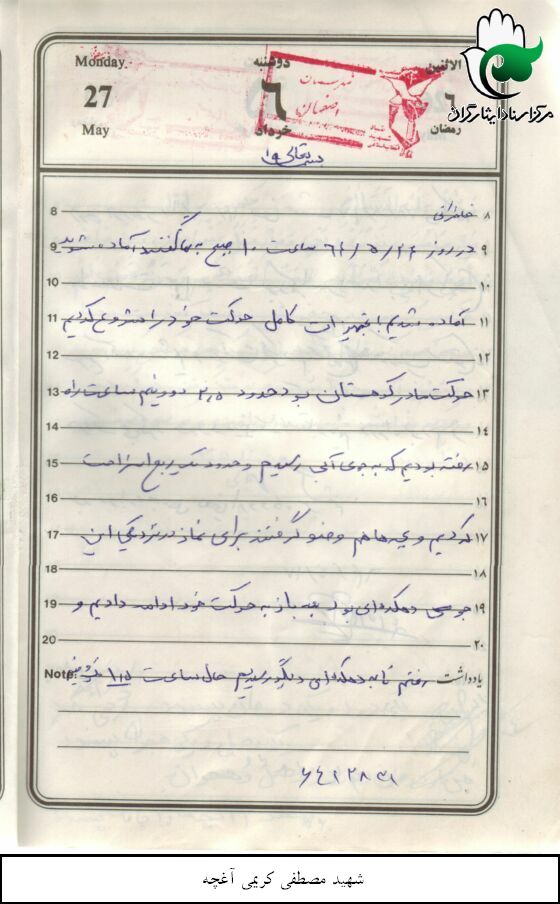 مرکز اسناد ایثارگران
Monday.
27
May
دوشنبه
۶
خرداد
الاثنین
۶
رمضان
اصفهان
بسمه تعالی
8 ۸ خاطراتی
9 ۹ در روز ۶۴/۵/۲۴ ساعت ۱۰ صبح به ما گفتند آماده شوید
10 ۱۰
11 ۱۱ آماده شدیم با تجهیزات کامل حرکت خود را شروع کردیم
12 ۱۲
13 ۱۳ حرکت ما در کردستان بود حدود ۲٫۵ دو و نیم ساعت راه
14 ۱٤
15 ۱۵ رفته بودیم که به جوی آبی رسیدیم و حدود یک ربع استراحت
16 ۱۶
17 ۱۷ کردیم و بچه ها هم وضو گرفتند برای نماز در نزدیکی این
18 ۱۸
19 ۱۹ جوی دهکده‌ای بود بعد باز به حرکت خود ادامه دادیم و
20 ۲۰
Note: یادداشت رفتیم تا به دهکده‌ای دیگر رسیدیم حال ساعت
۶۴۱۲۸۳۱
شهید مصطفی کریمی آغچه